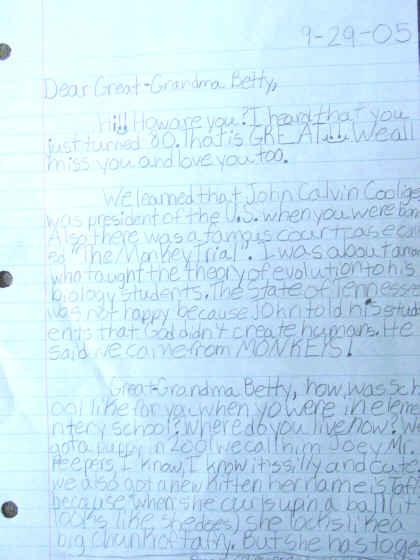 9-29-05
Dear Great-Grandma Betty,
Hi!! How are you? I heard that you
just turned 80. That is GREAT!! We all
miss you and love you too.
We learned that John Calvin Coolige
was president of the U.S. when you were born
Also there was a famous court case call
ed "The Monkey Trial". I was about a man
who taught the theory of evolution to his
biology students. The State of Tennessee
was not happy because John told his stud
ents that God didn't create humans. He
said we came from MONKEYS!
Great-Grandma Betty, how was sch
ool like for you when you were in eleme
ntery school? Where do you live now? We
got a puppy in 2001 we call him Joey Mr.
Peepers, I know, I know it's silly and cute
we also got a new kitten her name is Taffy
because when she curls up in a ball (it
looks like she does) she looks like a
big chunk of taffy. But she has to go